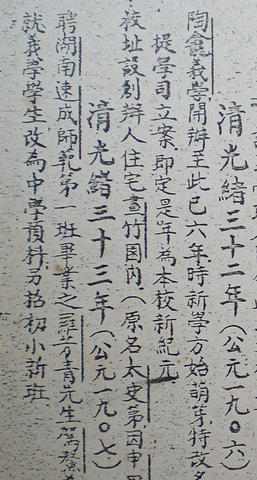 清光緒三十二年（公元一九〇六）
陶龕義學開辦至此已六年時新學方始萌芽特改名
提學司立案即定是年為本校新紀元
校址設創辦人住宅畫竹園內（原名太史第因申
清光緒三十三年（公元一九〇七）
聘湖南速成師範第一班畢業之羅芬青先生駕驂為
就義學學生改為中學預科另招初小新班